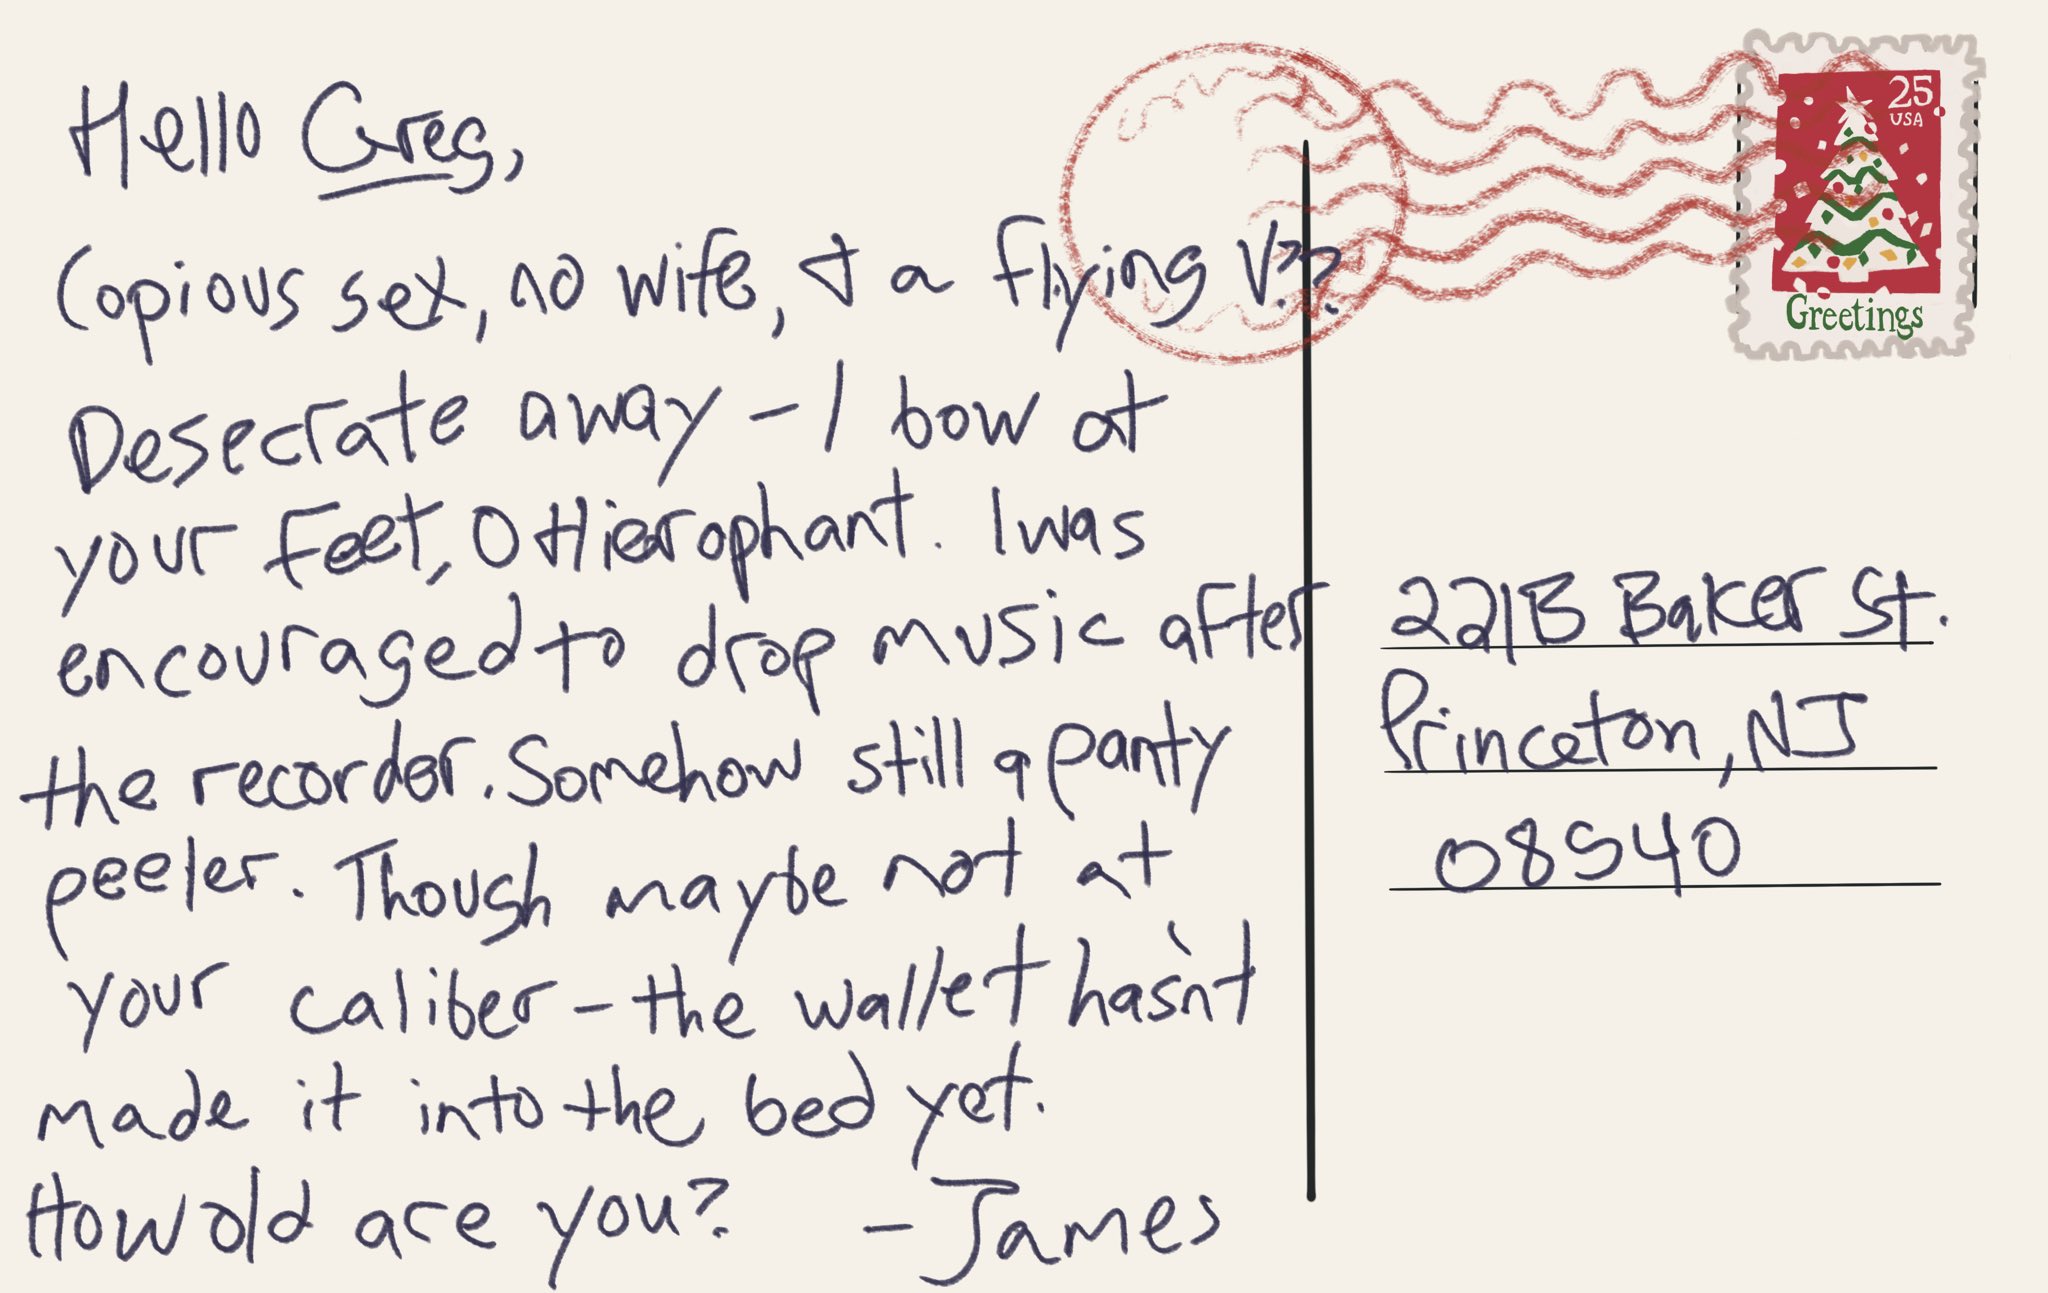 Hello Greg,
Copious sex, no wife, & a flying V??
Desecrate away - I bow at
your feet, O Hierophant. I was
encouraged to drop music after
the recorder. Somehow still a panty
peeler. Though maybe not at
your caliber - the wallet hasn't
made it into the bed yet.
How old are you? - James
25
USA
Greetings
221B Baker St.
Princeton, NJ
08540